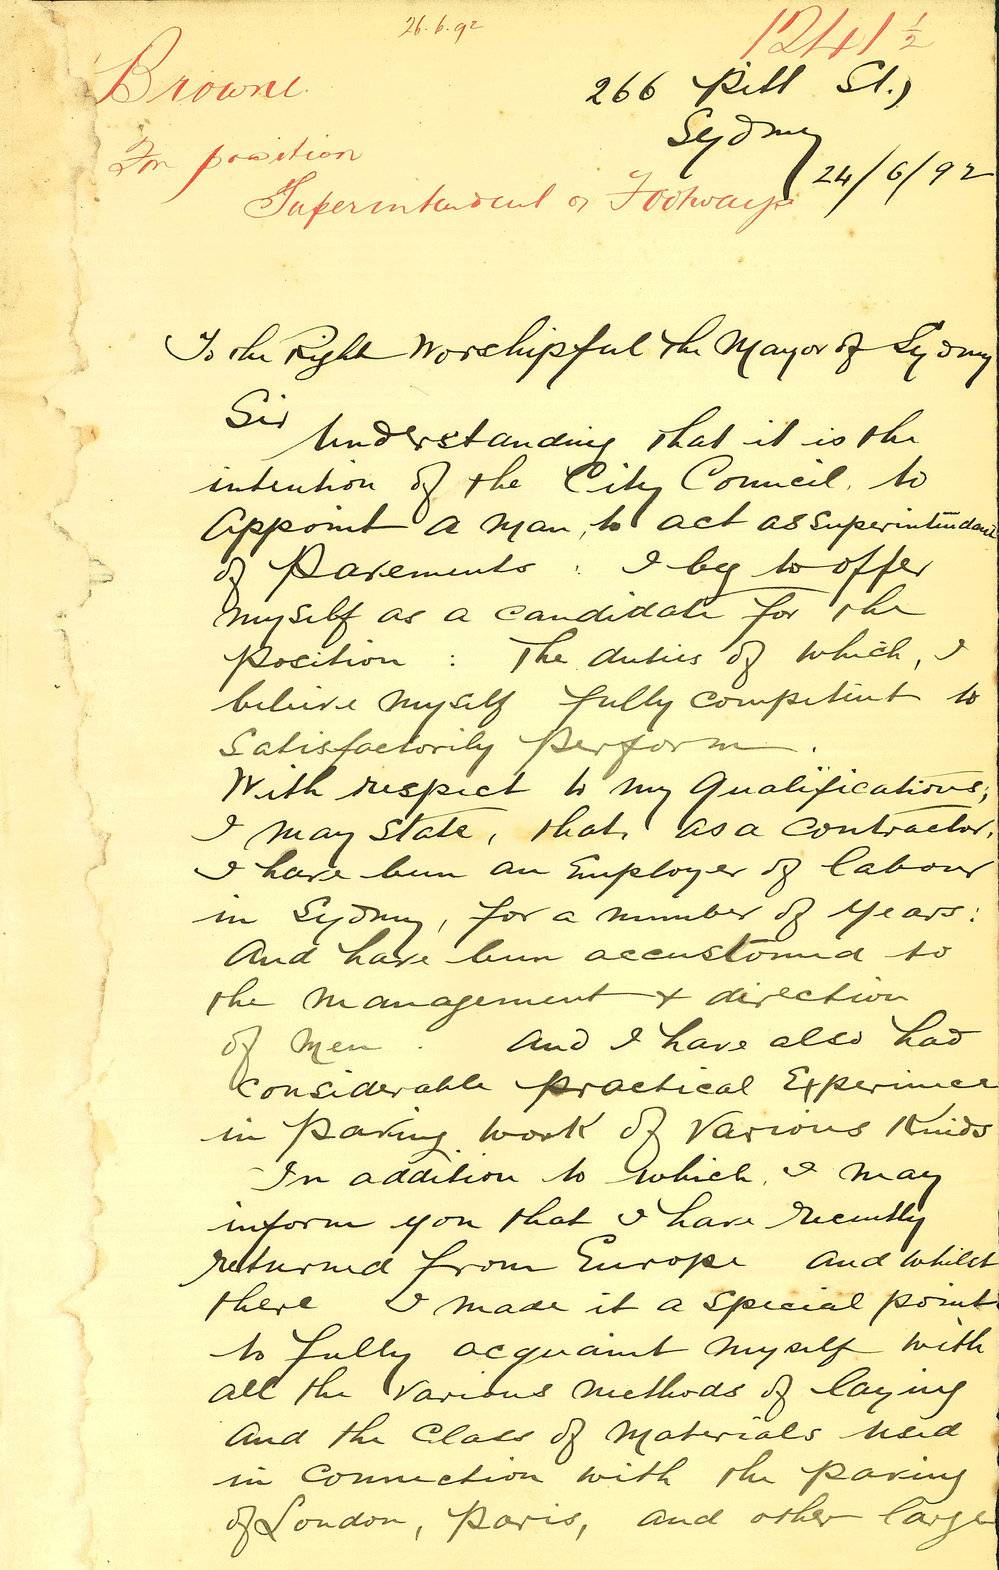 26.6.92
1241 ½
Browne
266 Pitt St.,
Sydney
For position
24/6/92
Superintendent of Footways
To the Right Worshipful the Mayor of Sydney
Sir
Understanding that it is the
intention of the City Council. to
Appoint a man, to act as Superintendant
of Pavements : I beg to offer
myself as a candidate for the
position : The duties of which, I
believe myself fully competent to
satisfactorily perform.
With respect to my Qualifications,
I may state, that, as a contractor,
I have been an Employer of labour
in Sydney, for a number of years:
And have been accustomed to
the management & direction
of Men. And I have also had
considerable practical Experience
in Paving work of various Kinds
In addition to which, I may
inform you that I have recently
returned from Europe and whilst
there I made it a special point
to fully acquaint myself with
all the various methods of laying
and the class of Materials used
in connection with the paving
of London, Paris, and other large